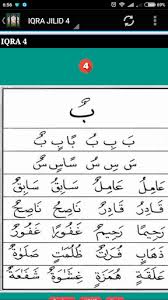 8:56
IQRA JILID 4
IQRA 4
4
بٌ
بَ بِ بُ بًا بٍ بٌ
سَ سِ سُ سًا سٍ سٌ
عَامِلُ عَامِلٌ سَابِقُ سَابِقٌ
قَادِرُ قَادِرٌ نَاصِحُ نَاصِحٌ
رَحِيمُ رَحِيمٌ غَفُورُ غَفُورٌ
ذَهَبٌ فُرَاتٌ ظُلُمَتٌ صَلٰوةٌ
عَلَقَةٌ هُمَزَةٌ غِشَاوَةٌ شَفَعَةٌ